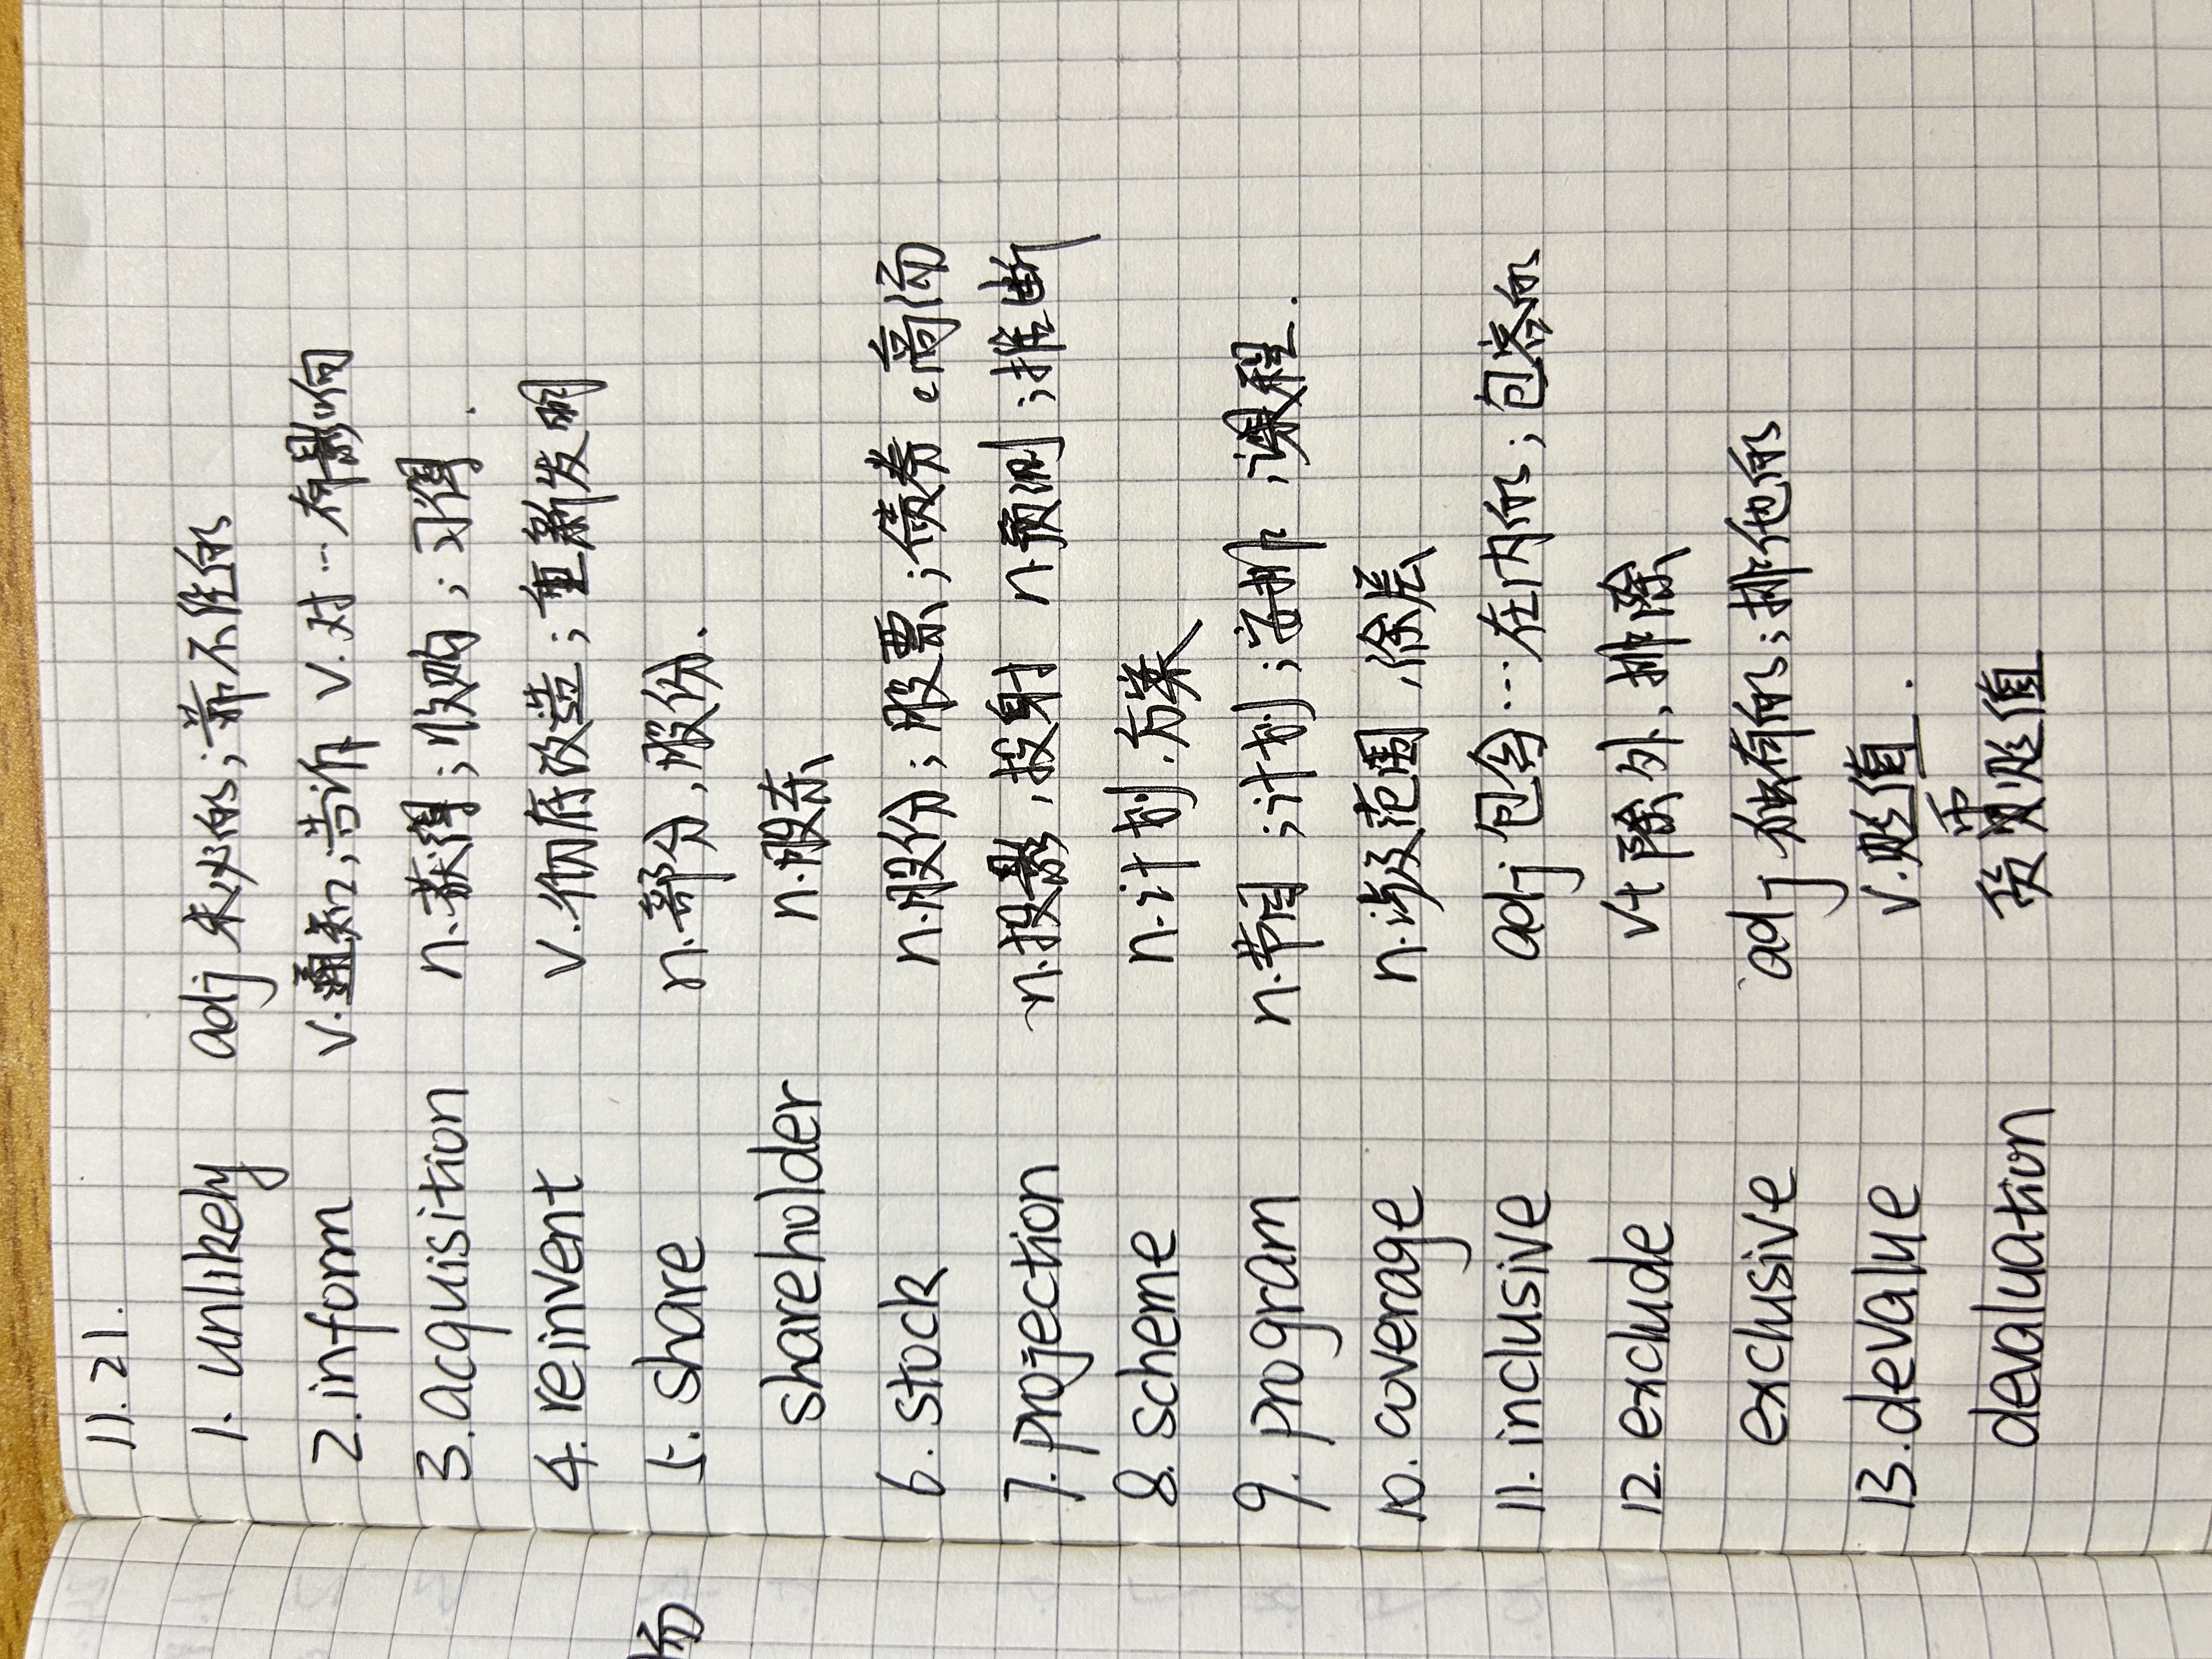 11.21.
1. unlikely adj 未必的；靠不住的
2. inform v.通知；告诉 v.对…有影响
3. acquisition n.获得；收购；习得.
4. reinvent v.彻底改造；重新发明
5. share n.部分，股份.
shareholder n.股东
6. stock n.股份；股票；债券
7. projection n.投影，投射 n.预测；推断
8. scheme n.计划，方案
9. program n.节目；计划；安排；课程.
10. coverage n.涉及范围，涂层
11. inclusive adj 包含…在内的；包容的
12. exclude vt 除外，排除
exclusive adj 独有的；排他的
13. devalue v.贬值.
devaluation 货币贬值
场